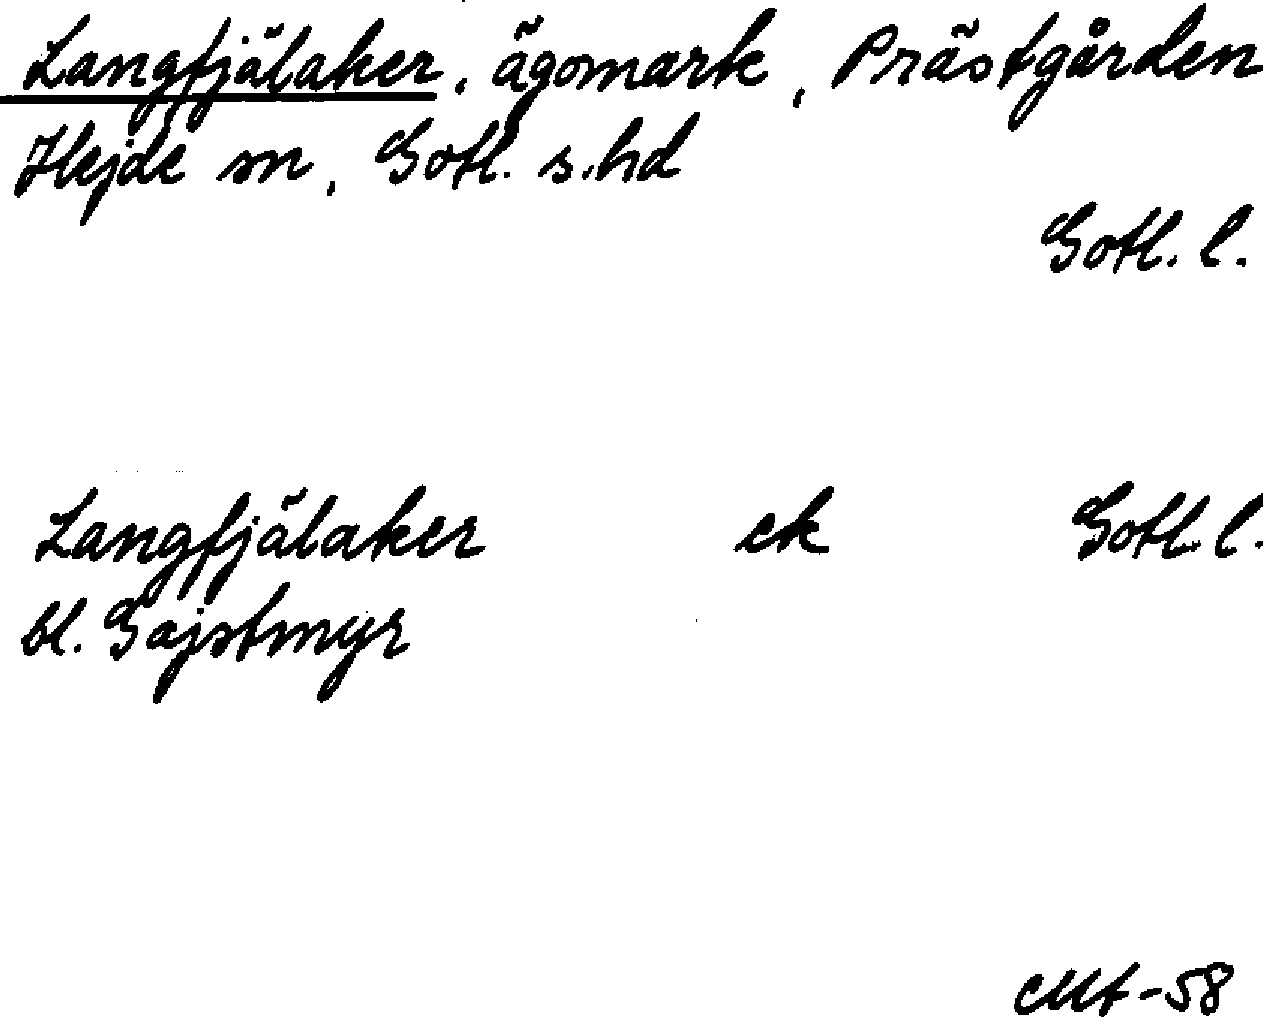 Langfjälaker, ägomark, Prästgården
Hejde sn, Gotl. s. hd
Gotl. l.
Langfjälaker ek Gotl. l.
bl. Gajstmyr
Mt-58